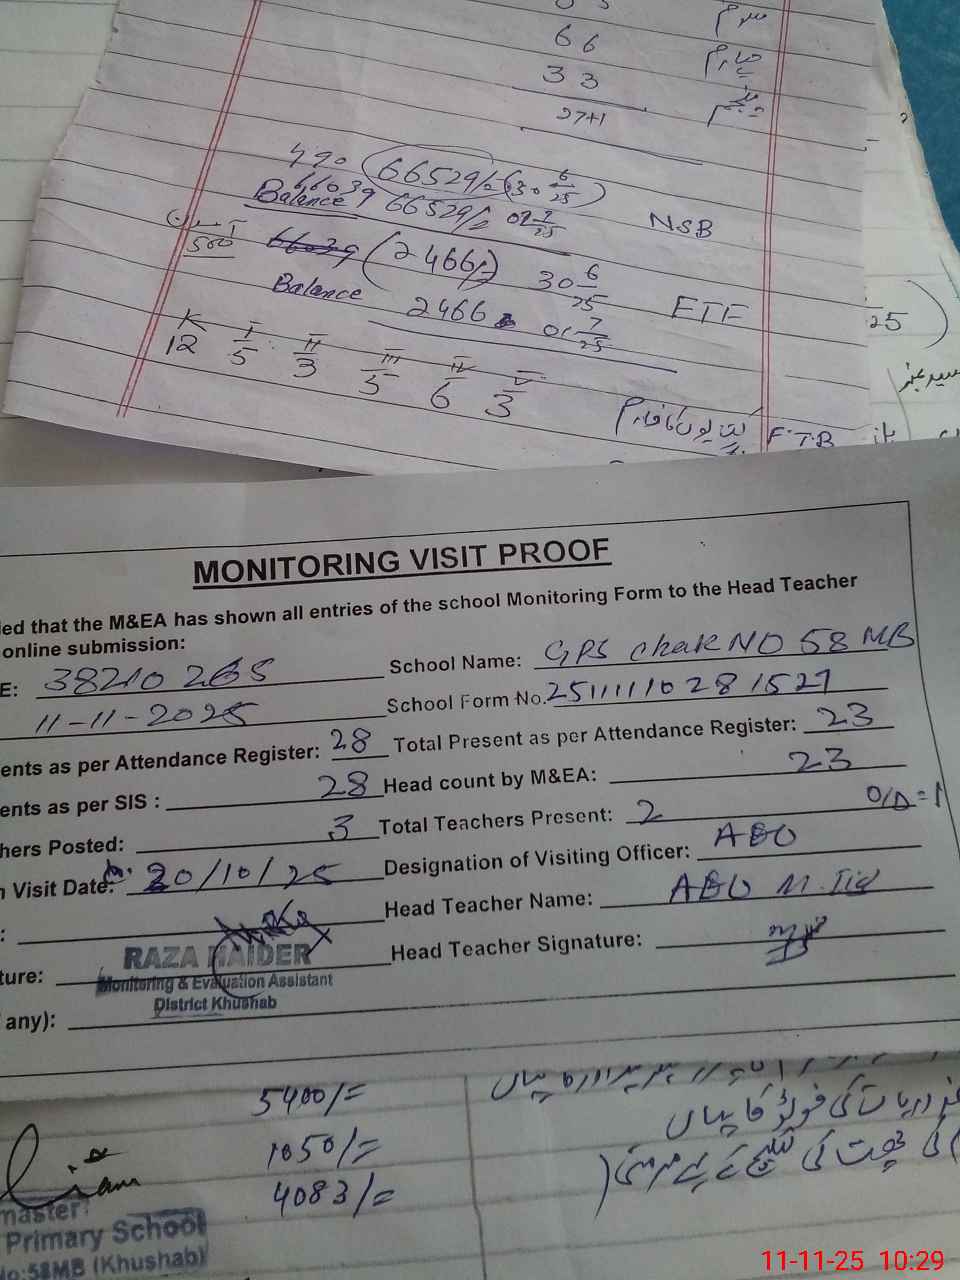 سوم
66 چہارم
33 پنجم
27+1
490 66529/- (30 6/25)
66039
Balance 66529/- 01 7/25 NSB
500
66039 (2466/-) 30 6/25 FTF
Balance 2466 01 7/25
K I II III IV V
12 5 3 5 6 3
F.T.B
25)
MONITORING VISIT PROOF
ied that the M&EA has shown all entries of the school Monitoring Form to the Head Teacher
online submission:
E: 38210265 School Name: GPS chak NO 58 MB
11-11-2025 School Form No. 25111110281527
ents as per Attendance Register: 28 Total Present as per Attendance Register: 23
ents as per SIS : 28 Head count by M&EA: 23
hers Posted: 3 Total Teachers Present: 2 O/D=1
n Visit Date: 20/10/25 Designation of Visiting Officer: AEO
: Head Teacher Name: AEO M.
ture: Head Teacher Signature:
RAZA HAIDER
Monitoring & Evaluation Assistant
District Khushab
any):
5400/=
1050/= کی فوٹو کاپیاں
4083/= کی چھت کی
master
Primary School
No:58MB (Khushab)
11-11-25 10:29